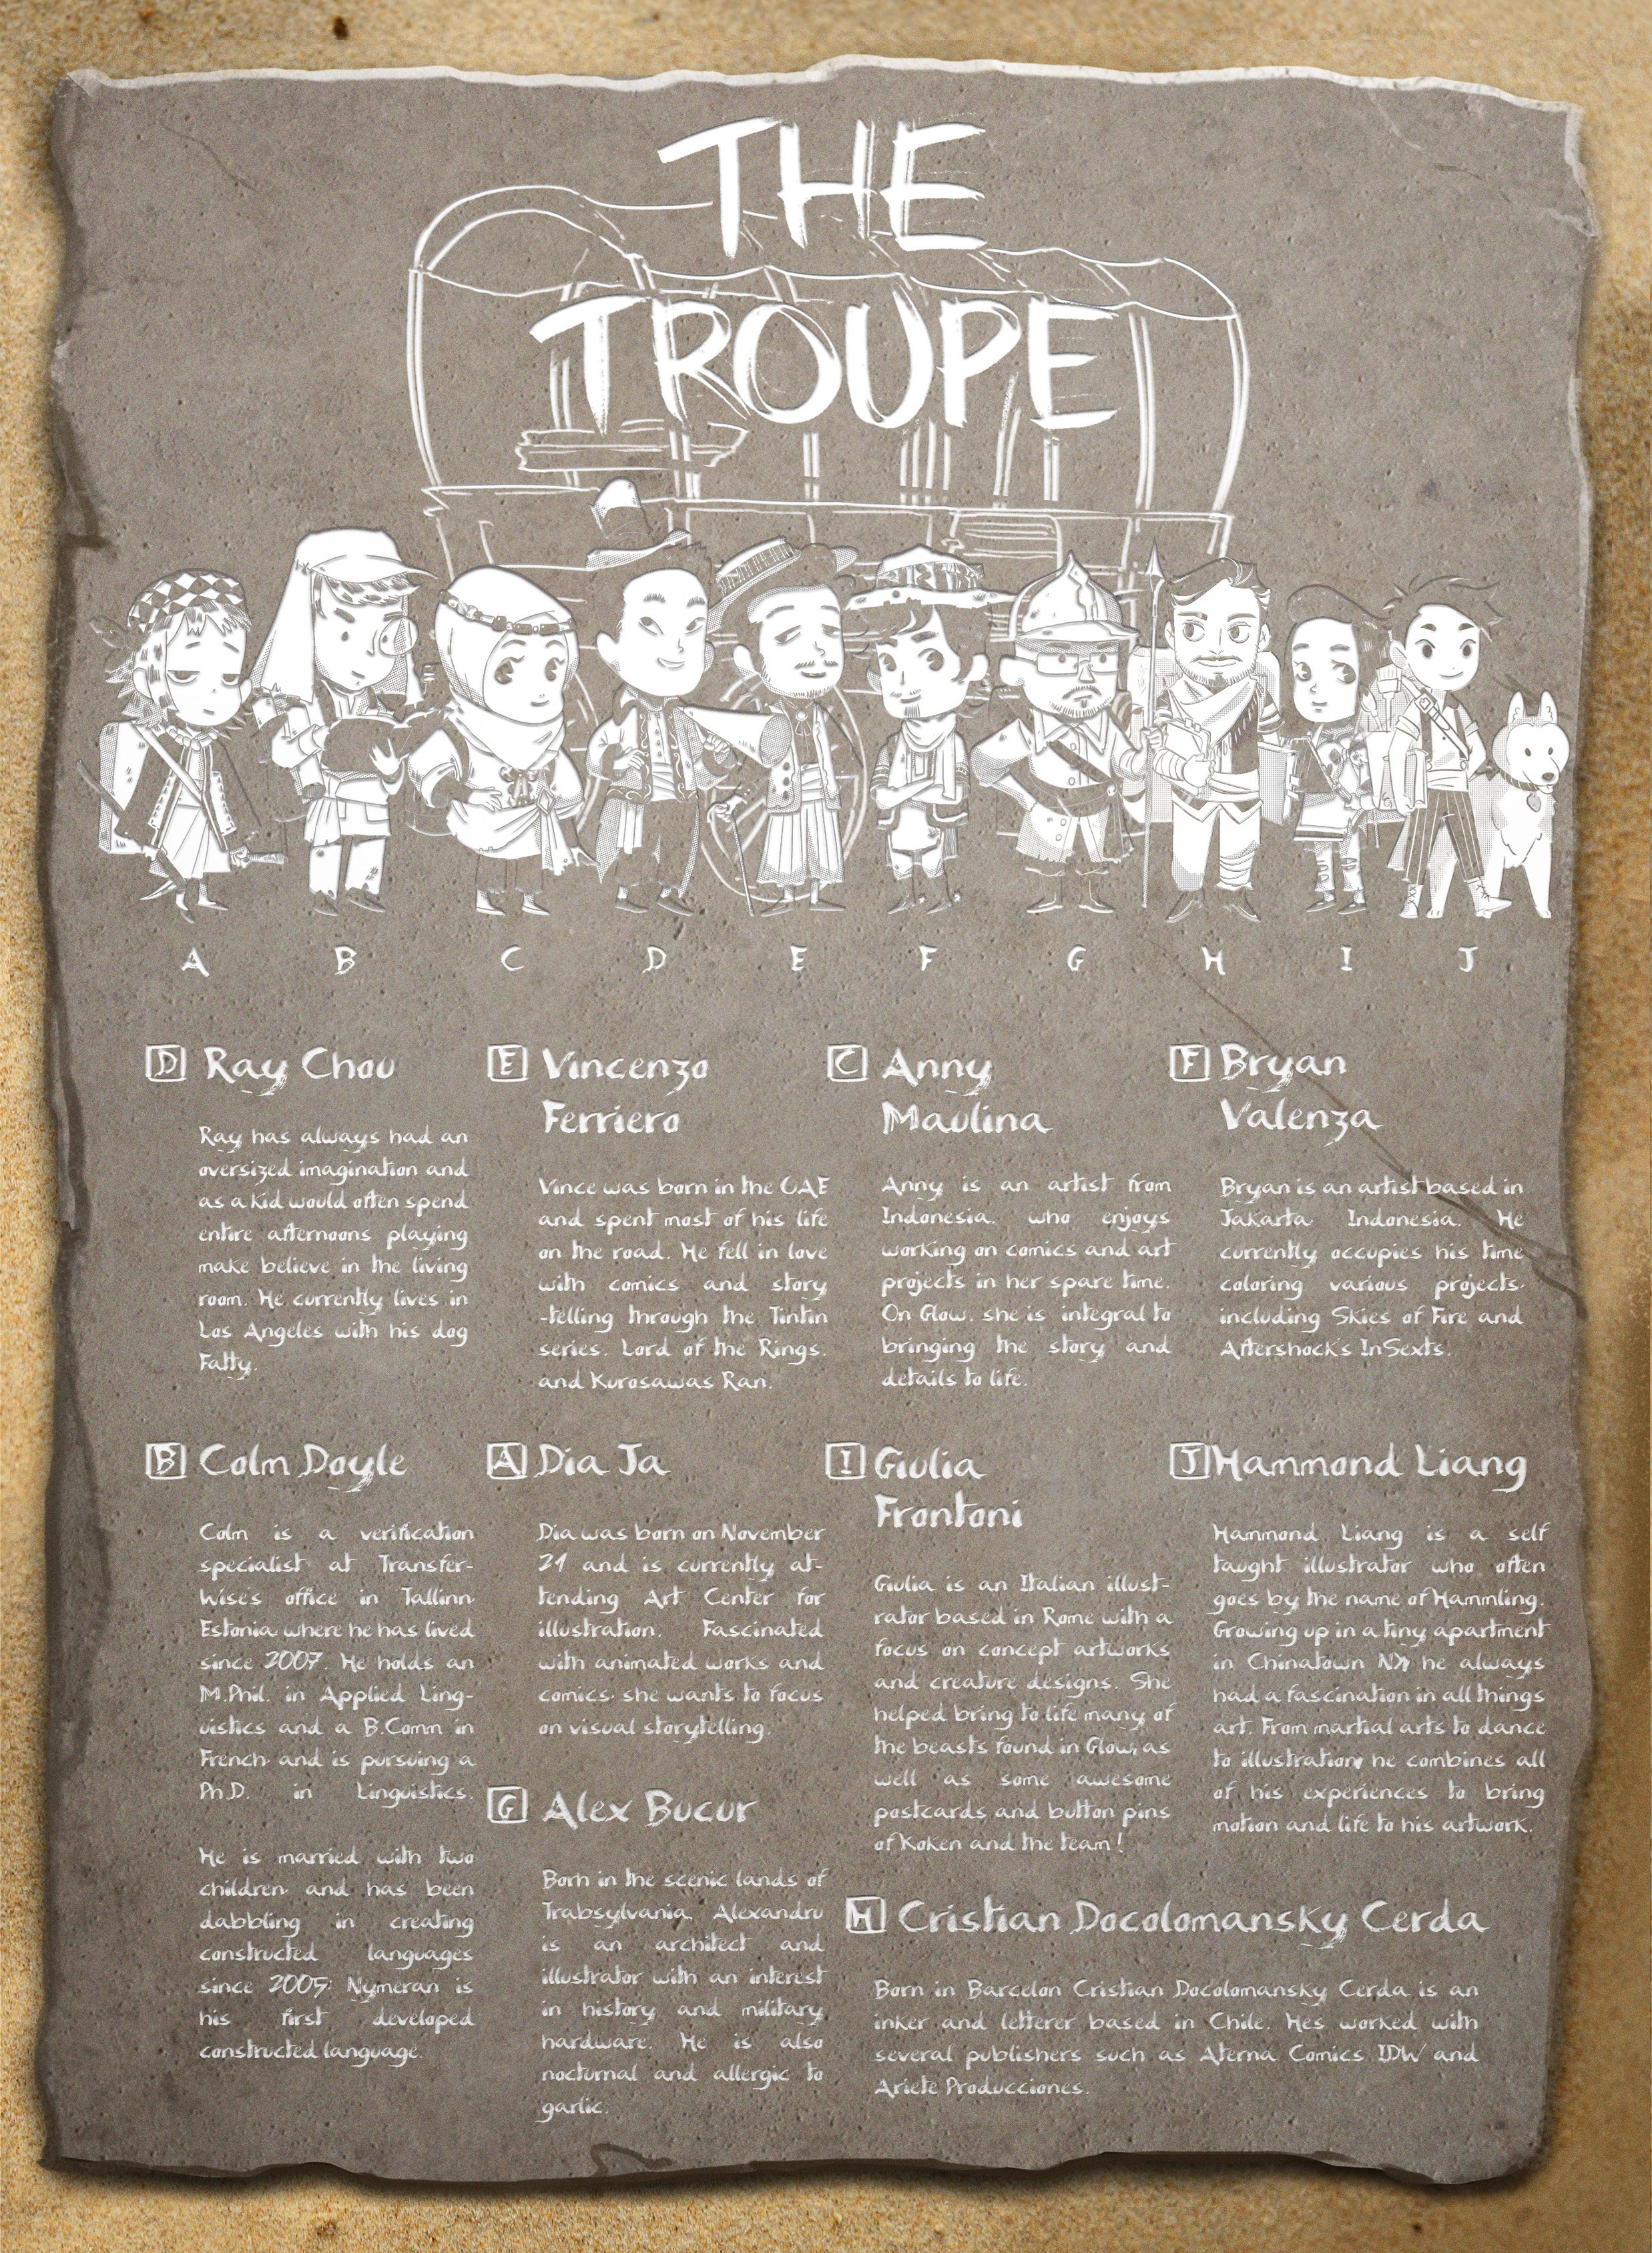 THE
TROUPE
A B C D E F G H I J
D Ray Chou
Ray has always had an
oversized imagination and
as a kid would often spend
entire afternoons playing
make believe in the living
room. He currently lives in
Los Angeles with his dog
Fatty.
E Vincenzo
Ferriero
Vince was born in the UAE
and spent most of his life
on the road. He fell in love
with comics and story
-telling through the Tintin
series, Lord of the Rings,
and Kurosawas Ran.
C Anny
Maulina
Anny is an artist from
Indonesia, who enjoys
working on comics and art
projects in her spare time.
On Glow, she is integral to
bringing the story and
details to life.
F Bryan
Valenza
Bryan is an artist based in
Jakarta, Indonesia. He
currently occupies his time
coloring various projects,
including Skies of Fire and
Aftershock's InSexts.
B Colm Doyle
Colm is a verification
specialist at Transfer-
Wise's office in Tallinn,
Estonia, where he has lived
since 2007. He holds an
M.Phil. in Applied Ling-
uistics and a B.Comm in
French, and is pursuing a
Ph.D. in Linguistics.
He is married with two
children, and has been
dabbling in creating
constructed languages
since 2005; Nymeran is
his first developed
constructed language.
A Dia Ja
Dia was born on November
21 and is currently at-
tending Art Center for
illustration. Fascinated
with animated works and
comics, she wants to focus
on visual storytelling.
G Alex Bucur
Born in the scenic lands of
Trabsylvania, Alexandru
is an architect and
illustrator with an interest
in history and military
hardware. He is also
nocturnal and allergic to
garlic.
I Giulia
Frontoni
Giulia is an Italian illust-
rator based in Rome with a
focus on concept artworks
and creature designs. She
helped bring to life many of
the beasts found in Glow, as
well as some awesome
postcards and button pins
of Koken and the team!
J Hammond Liang
Hammond Liang is a self
taught illustrator who often
goes by the name of Hammling.
Growing up in a tiny apartment
in Chinatown NY, he always
had a fascination in all things
art. From martial arts to dance
to illustration, he combines all
of his experiences to bring
motion and life to his artwork.
H Cristian Docolomansky Cerda
Born in Barcelon Cristian Docolomansky Cerda is an
inker and letterer based in Chile. Hes worked with
several publishers such as Aterna Comics IDW and
Ariete Producciones.